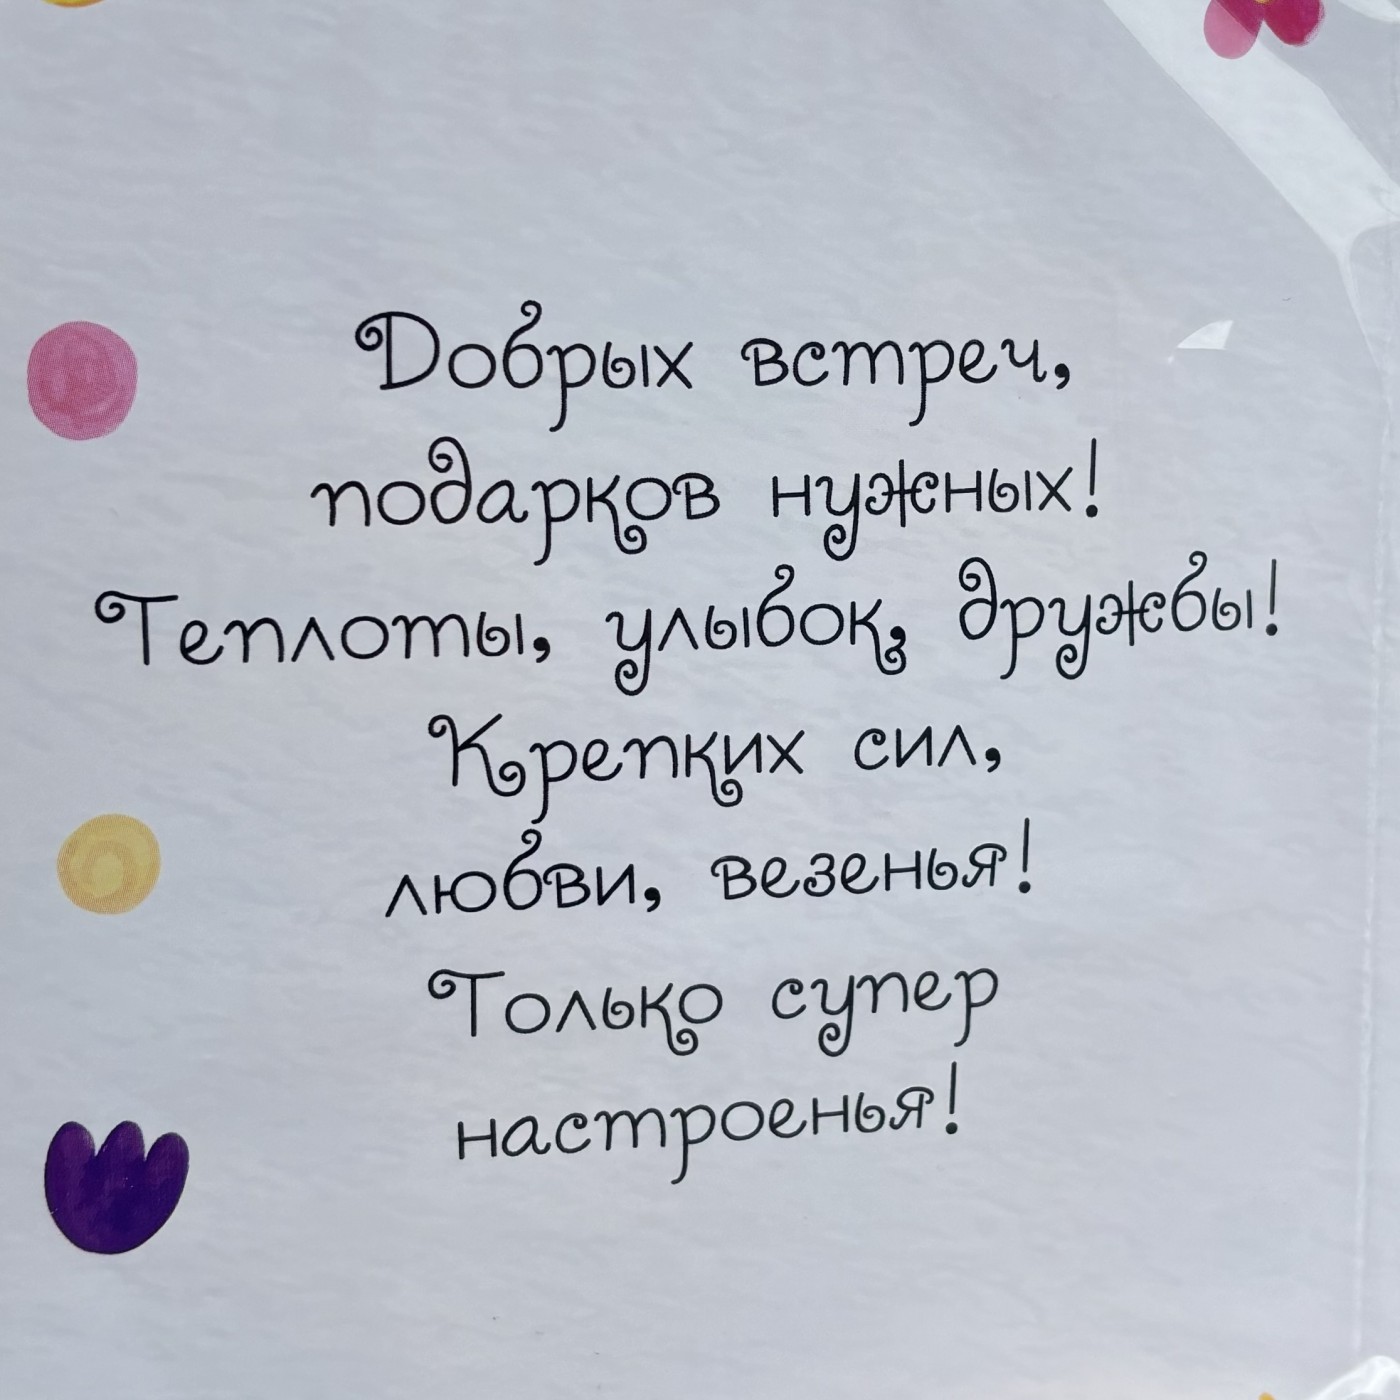 Добрых встреч,
подарков нужных!
Теплоты, улыбок, дружбы!
Крепких сил,
любви, везенья!
Только супер
настроенья!